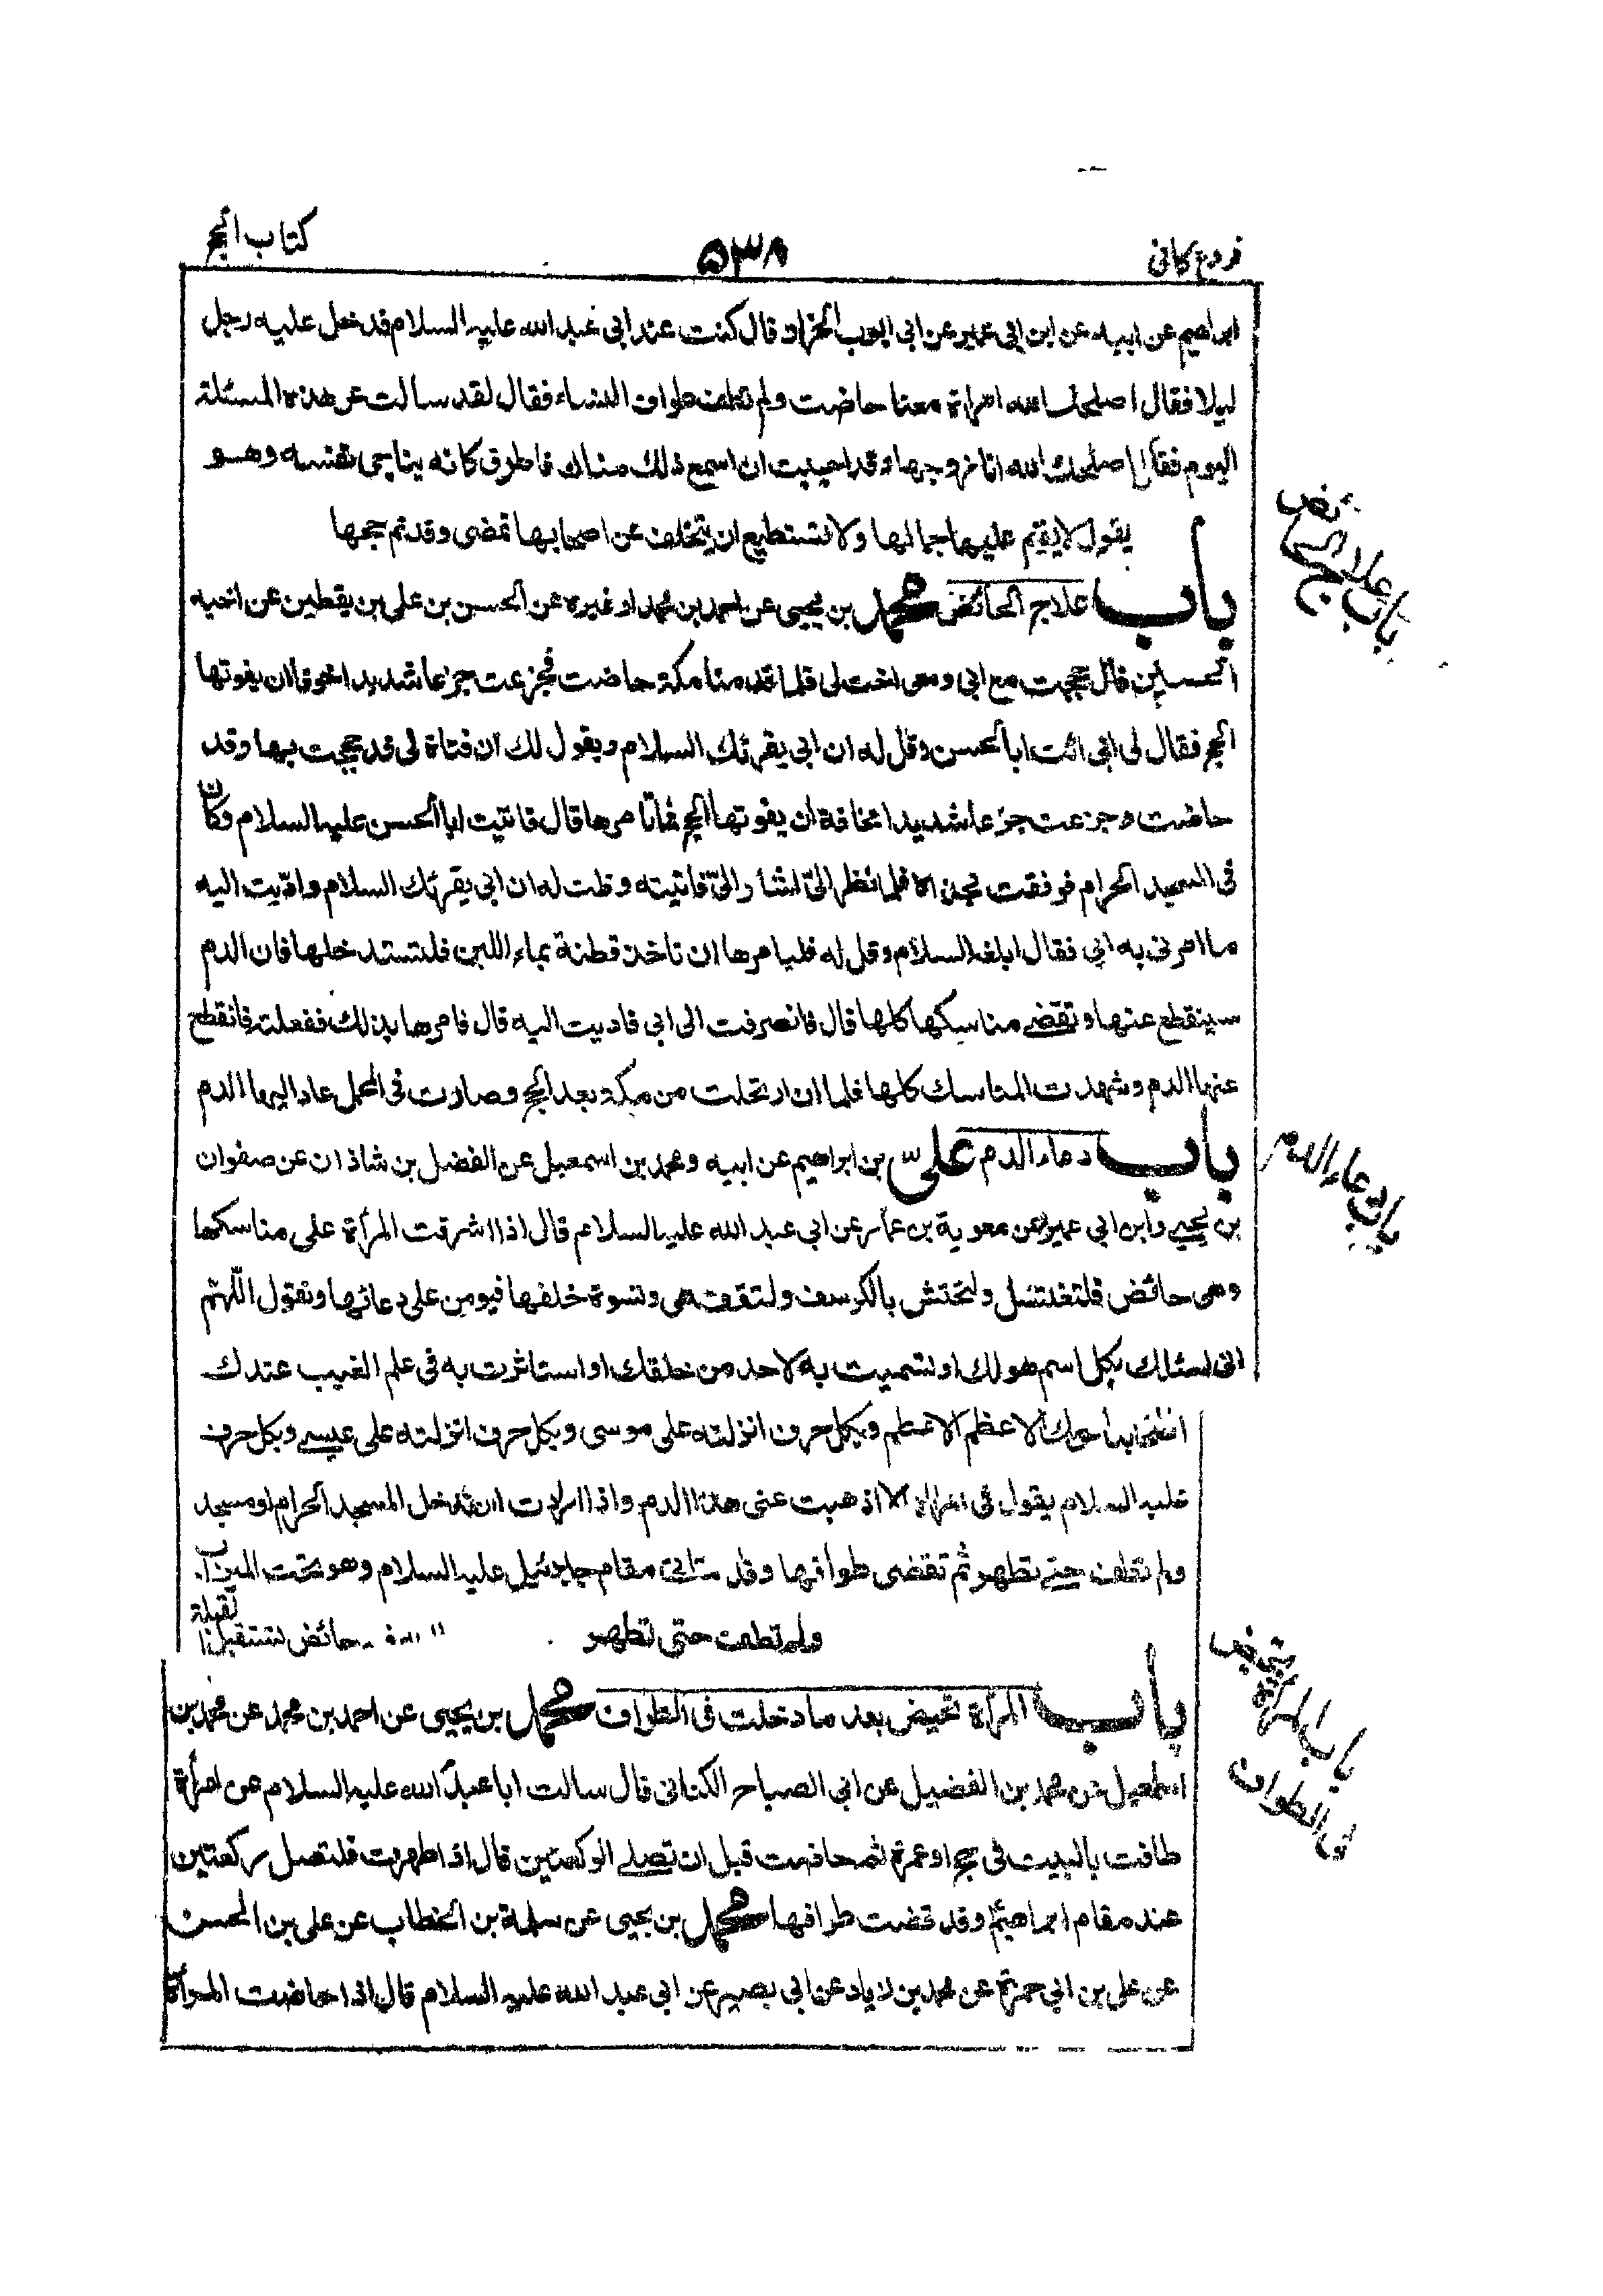 فروع كافى
۵۳۸
كتاب الحج
ابراهيم عن ابيه عن ابن ابى عمير عن ابى ايوب الخزاز قال كنت عند ابى عبد الله عليه السلام فدخل عليه رجل
ليلا فقال اصلحك الله امرأة معنا حاضت ولم تطف طواف النساء فقال لقد سالت عن هذه المسئلة
اليوم فقال اصلحك الله انا زوجها وقد احببت ان اسمع ذلك منك فاطرق كانه يناجى نفسه وهو
يقول لا يقيم عليها جمالها ولا تستطيع ان يتخلف عن اصحابها تمضى وقد تم حجها
باب علاج الحائض محمد بن يحيى عن احمد بن محمد او غيره عن الحسن بن على بن يقطين عن اخيه
الحسين قال حججت مع ابى ومعى اخت لى فلما قدمنا مكة حاضت فجزعت جزعا شديدا خوفا ان يفوتها
الحج فقال لى ابى ائت ابا الحسن وقل له ان ابى يقرئك السلام ويقول لك ان فتاة لى قد حججت بها وقد
حاضت وجزعت جزعا شديدا مخافة ان يفوتها الحج فما تامرها قال فاتيت ابا الحسن عليه السلام وكان
فى المسجد الحرام فوقفت بحذاه فلما نظر الىّ اشار الىّ فاتيته وقلت له ان ابى يقرئك السلام وادّيت اليه
ما امرنى به ابى فقال ابلغه السلام وقل له فليامرها ان تاخذ قطنة بماء اللبن فلتستدخلها فان الدم
سينقطع عنها وتقضى مناسكها كلها قال فانصرفت الى ابى فاديت اليه قال فامرها بذلك ففعلته فانقطع
عنها الدم وشهدت المناسك كلها فلما ان ارتحلت من مكة بعد الحج وصارت فى المحمل عاد اليها الدم
باب دعاء الدم علىّ بن ابراهيم عن ابيه ومحمد بن اسمعيل عن الفضل بن شاذان عن صفوان
بن يحيى وابن ابى عمير عن معوية بن عمار عن ابى عبد الله عليه السلام قال اذا اشرفت المرأة على مناسكها
وهى حائض فلتغتسل ولتحتش بالكرسف ولتقف هى ونسوة خلفها فيومن على دعائها وتقول اللّهم
انى اسئلك بكل اسم هو لك او تسميت به لاحد من خلقك او استاثرت به فى علم الغيب عندك
باسمك الاعظم الاعظم وبكل حرف انزلته على موسى وبكل حرف انزلته على عيسى وبكل حرف
عليه السلام يقول فى الا اذهبت عنى هذا الدم واذا ارادت ان تدخل المسجد الحرام او مسجد
ولم تطف حتى تطهر ثم تقضى طوافها وقد تاتى مقام جبرئيل عليه السلام وهو تحت الميزاب
ولم تطف حتى تطهر حائض تستقبل القبلة
باب المرأة تحيض بعد ما دخلت فى الطواف محمد بن يحيى عن احمد بن محمد عن محمد بن
اسمعيل عن محمد بن الفضيل عن ابى الصباح الكنانى قال سالت ابا عبد الله عليه السلام عن امرأة
طافت بالبيت فى حج او عمرة ثم حاضت قبل ان تصلى الركعتين قال اذا طهرت فلتصل ركعتين
عند مقام ابراهيم وقد قضت طوافها محمد بن يحيى عن سلمة بن الخطاب عن على بن الحسن
عن على بن ابى حمزة عن محمد بن زياد عن ابى بصير عن ابى عبد الله عليه السلام قال اذا حاضت المرأة
باب علاج الحائض
باب دعاء الدم
باب المرأة تحيض
فى الطواف